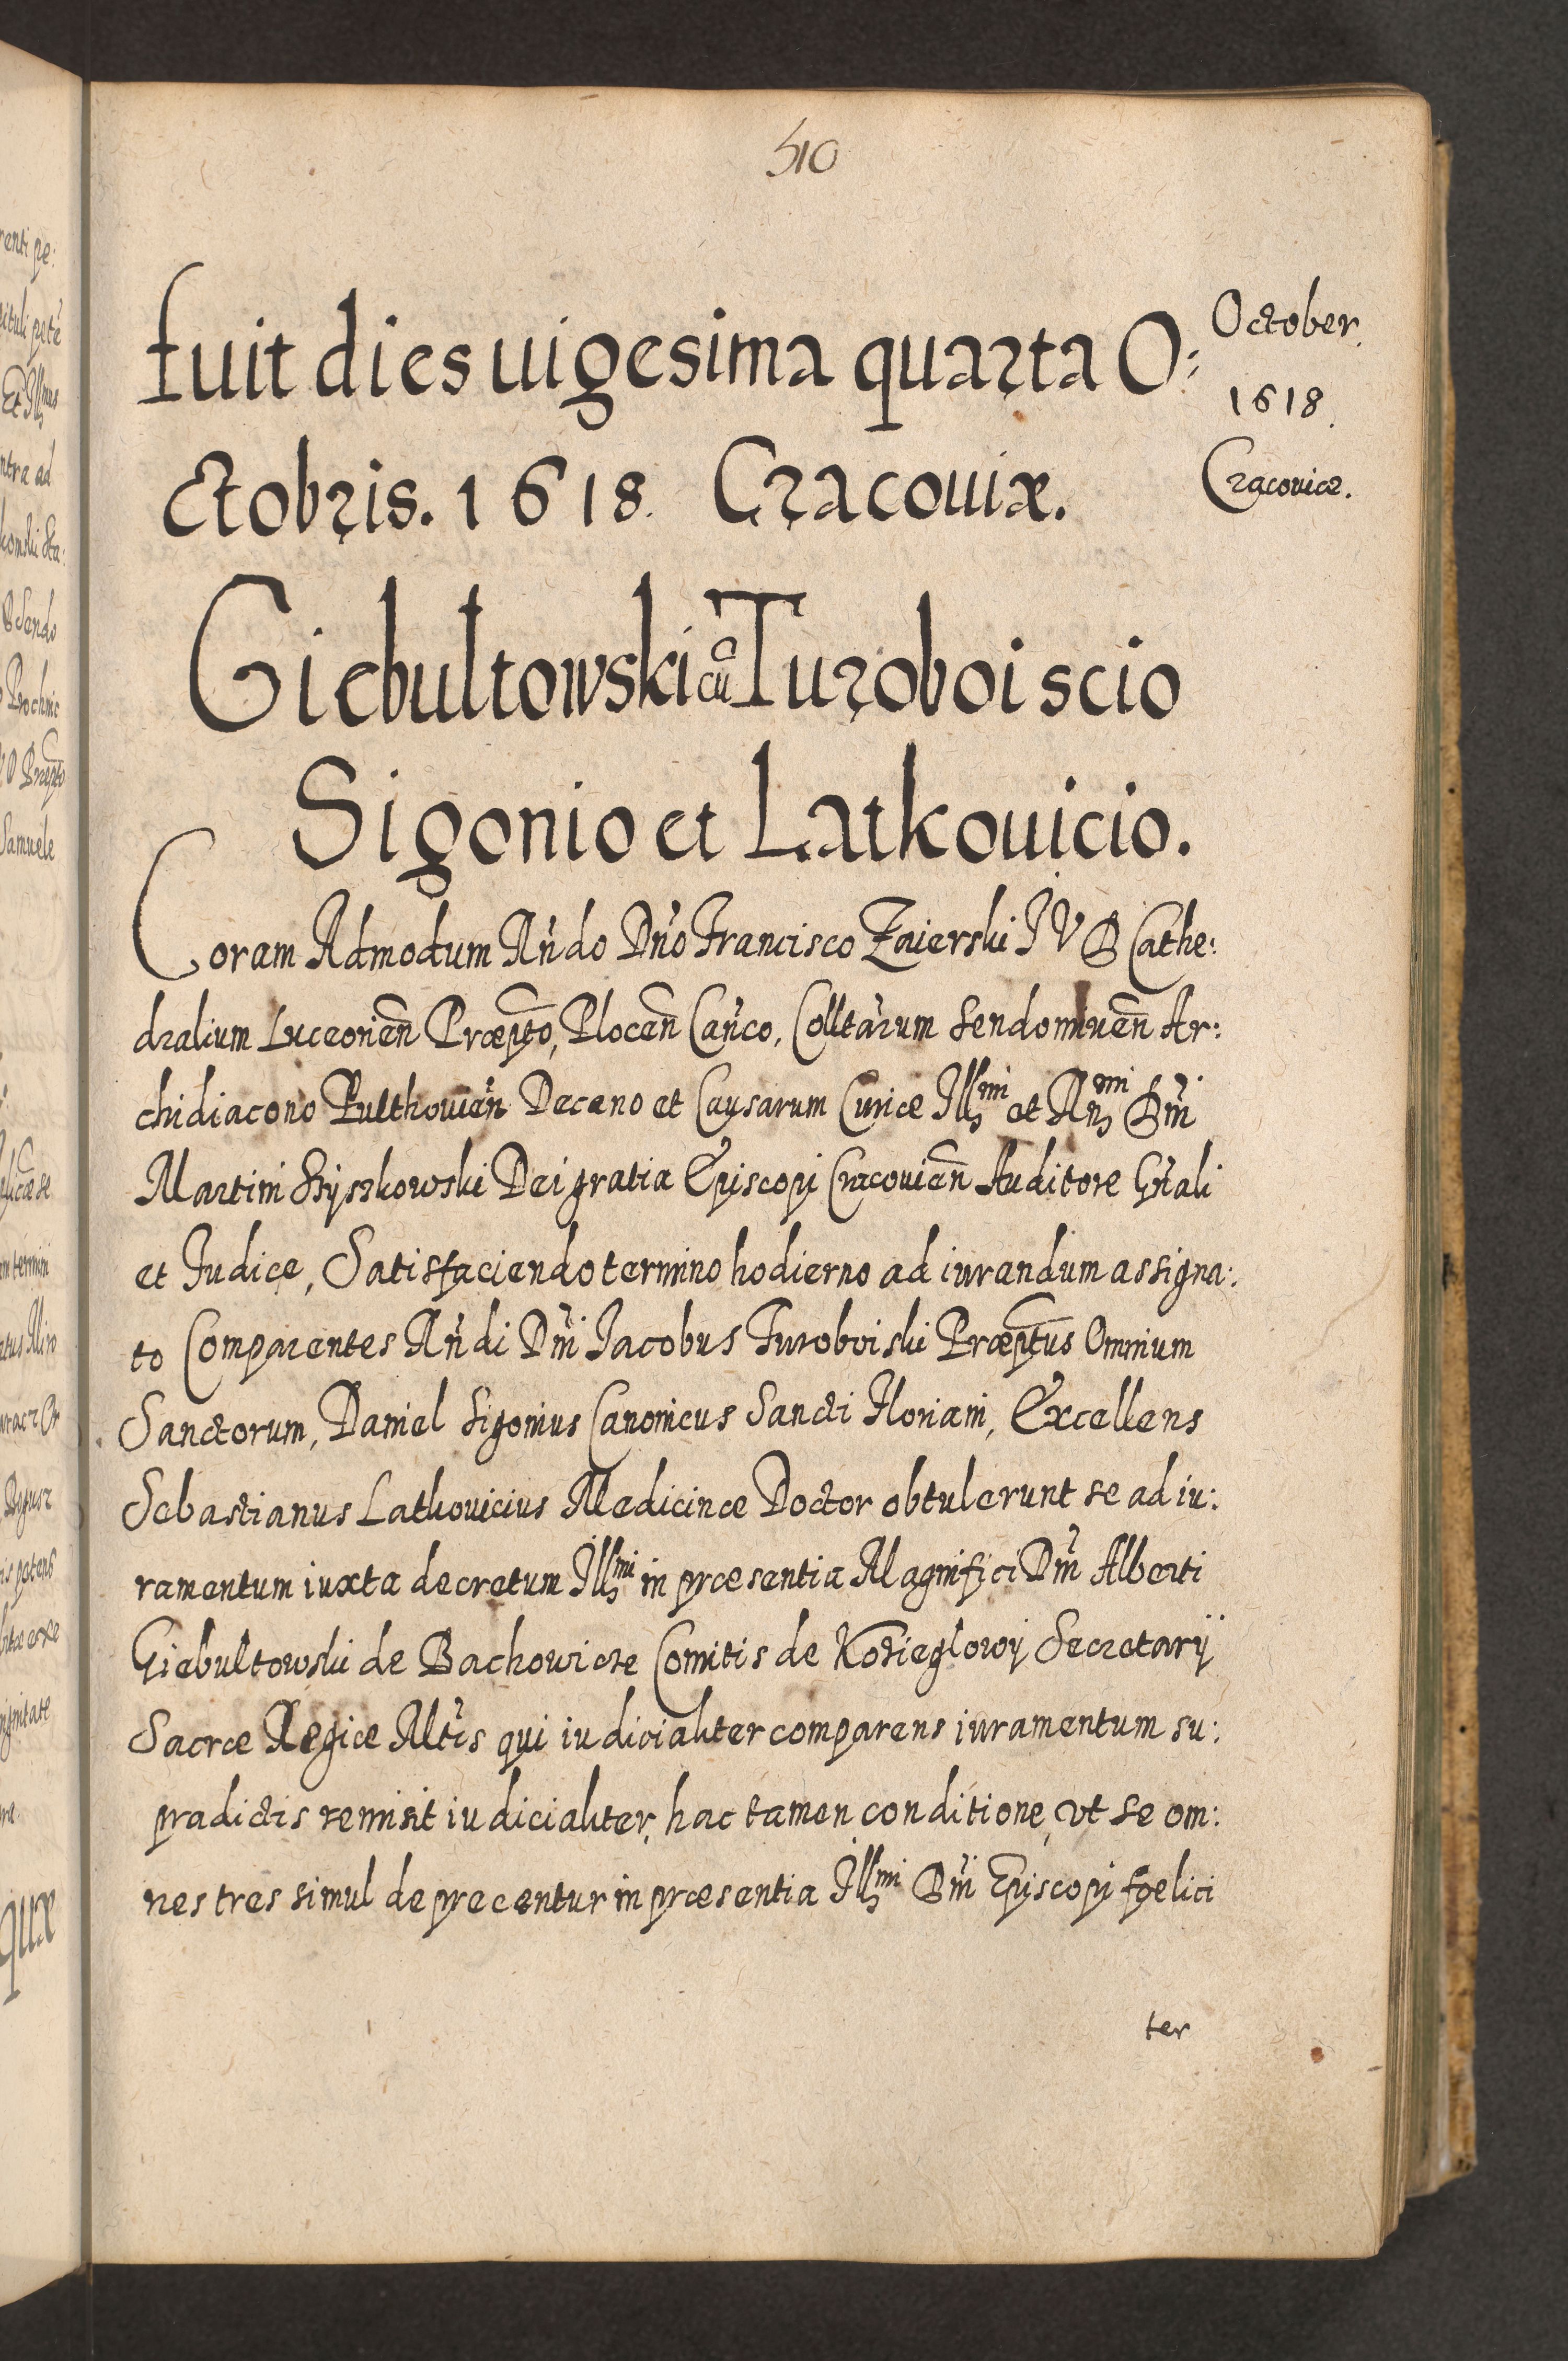 510
fuit dies uigesima quarta O:
October.
1618.
ctobris. 1618. Cracouiæ.
Cracouiæ.
Giebultowski cũ Turoboiscio
Sigonio et Latkouicio.
Coram Admodum Rn̄do Dn̄o Francisco Zaierski J V D Cathe:
dralium Luceorien̄ Præpt̄o, Plocen̄ Can̄co, Colltārum Sendomiuen̄ Ar:
chidiacono Pulthouien̄ Decano et Causarum Curiæ Illmi et Rnmi Dn̄i
Martini Szyszkowski Dei gratia Episcopi Cracouien̄ Auditore Gn̄ali
et Judice, Satisfaciendo termino hodierno ad iurandum assigna:
to Comparentes Rn̄di Dn̄i Jacobus Turoboiski Præpt̄us Omnium
Sanctorum, Daniel Sigonius Canonicus Sancti Floriani, Excellens
Sebastianus Latkouicius Medicinæ Doctor obtulerunt se ad iu:
ramentum iuxta decretum Illmi in præsentia Magnifici Dn̄i Alberti
Giebultowski de Bachowicze Comitis de Kozieglowy Secretarÿ
Sacræ Regiæ Mt̄is qui iudicialiter comparens iuramentum su:
pradictis remisit iudicialiter, hac tamen conditione, vt se om:
nes tres simul deprecentur in præsentia Illmi Dn̄i Episcopi fœlici
ter